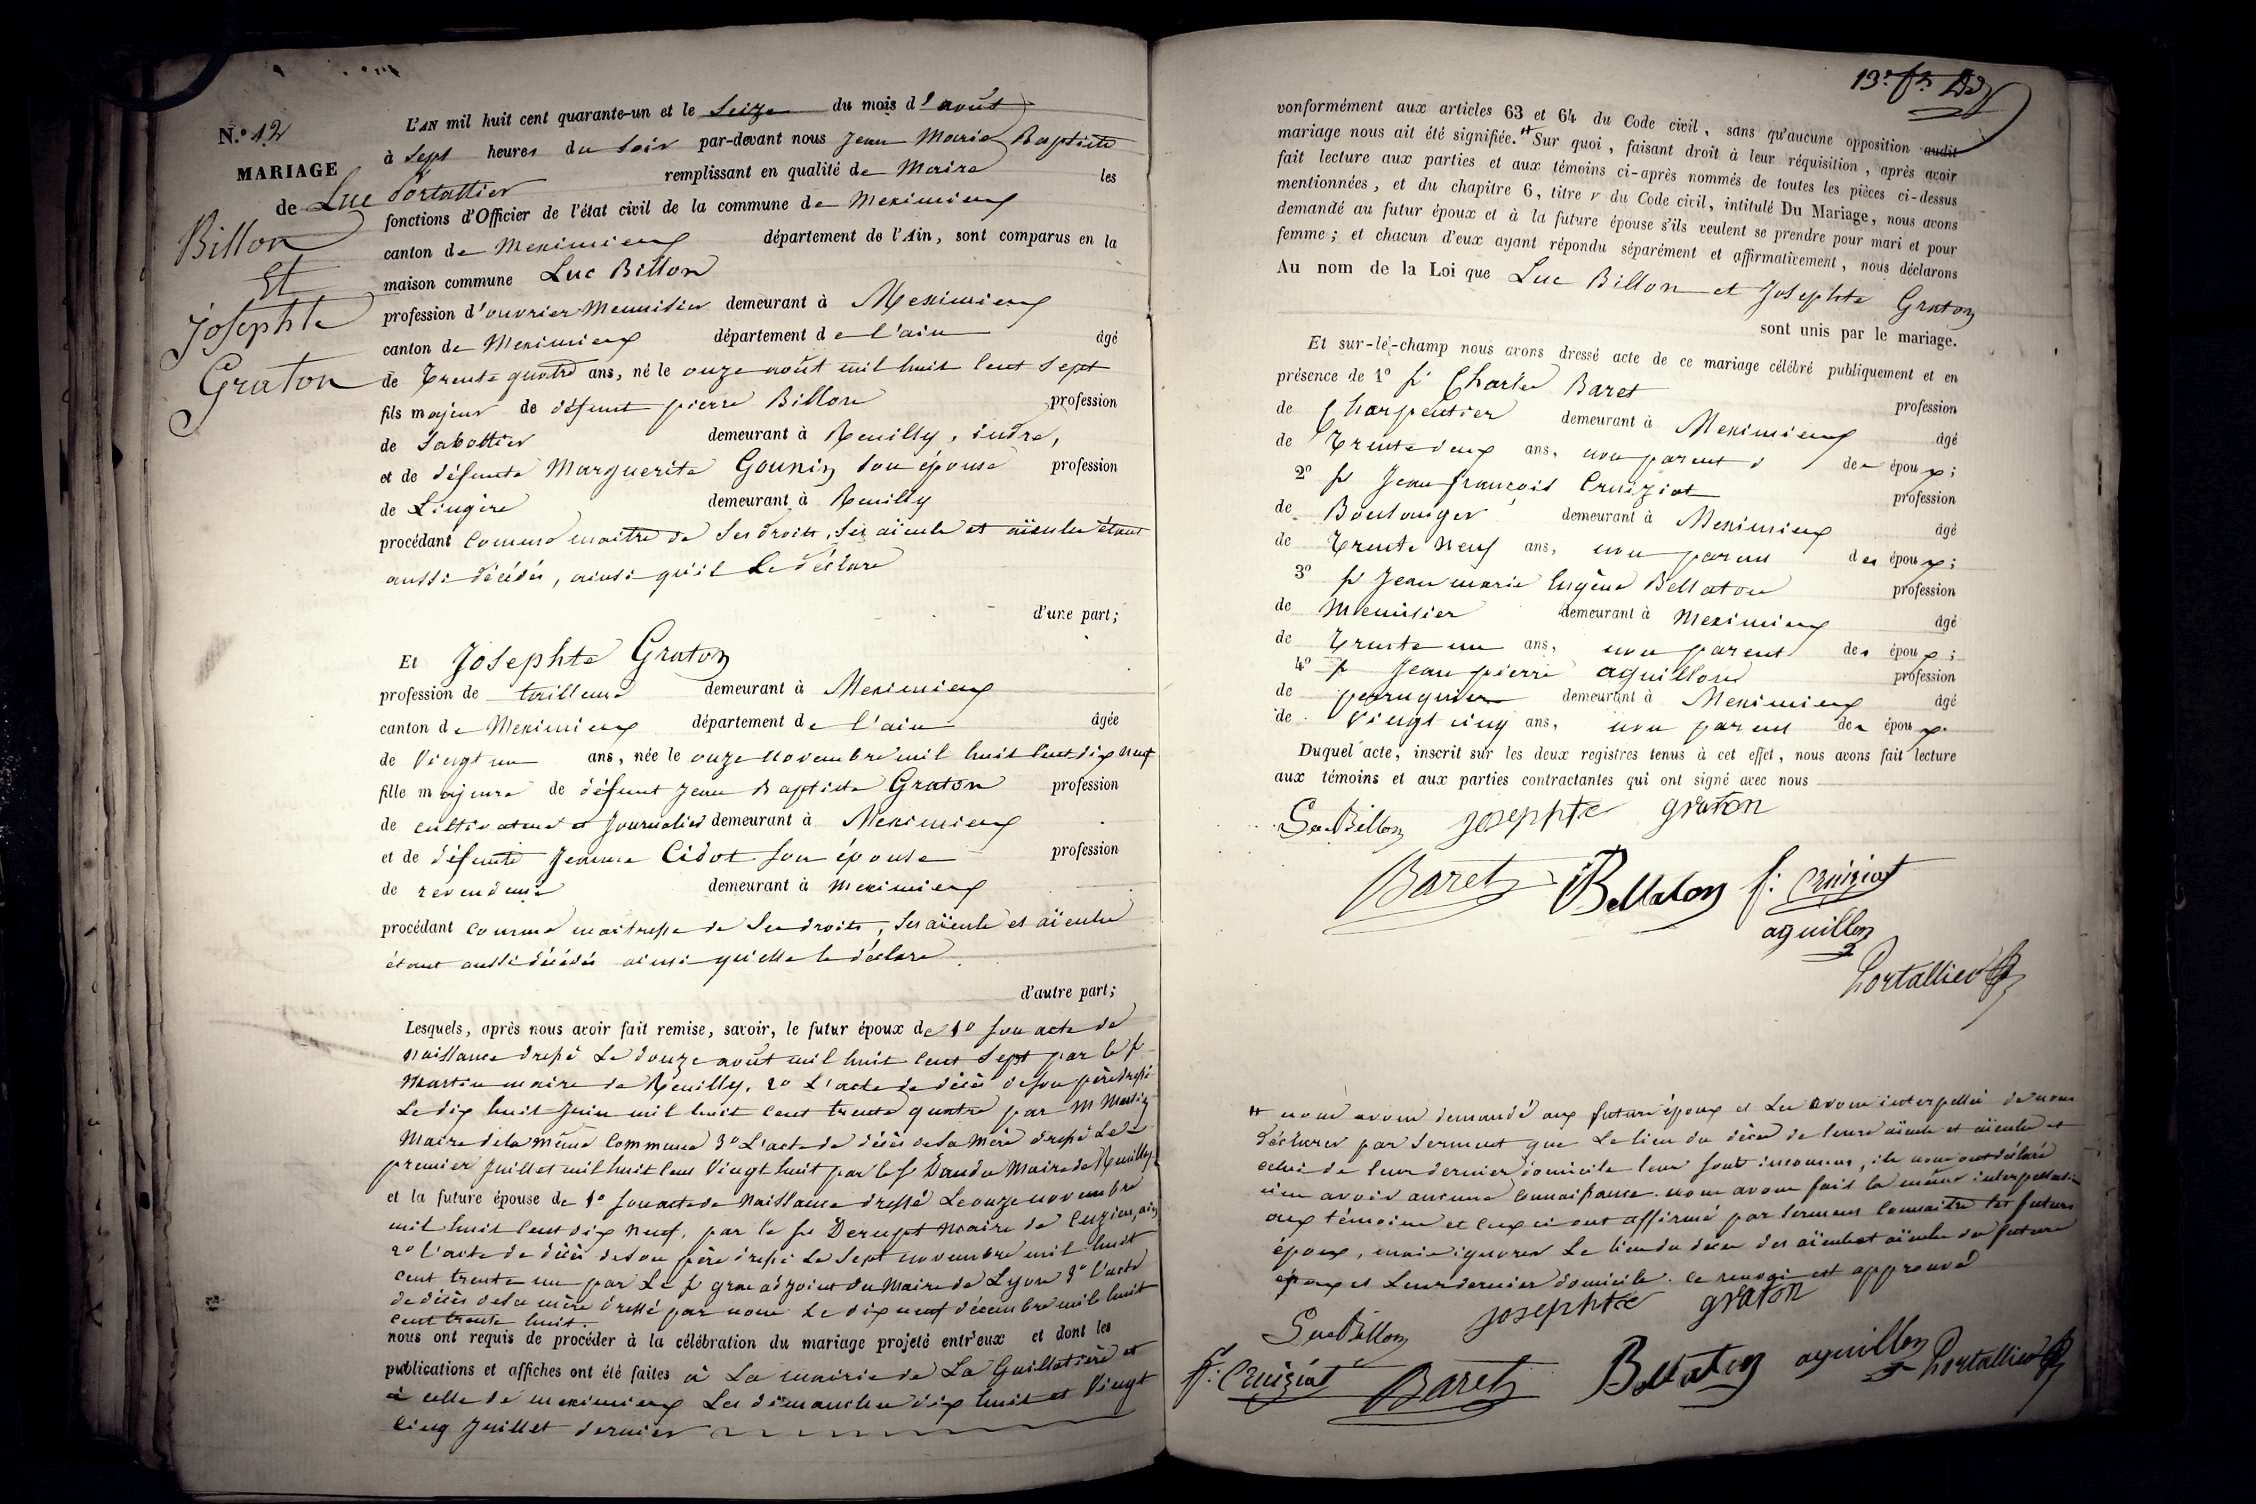 N.º 12
MARIAGE
de Luc
Billon
Et
Josephte
Graton
L'AN mil huit cent quarante-un et le Seize du mois d'août
à Sept heures du Soir par-devant nous Jean Marie Baptiste
Portallier remplissant en qualité de Maire les
fonctions d'Officier de l'état civil de la commune de Meximieux
canton de Meximieux département de l'Ain, sont comparus en la
maison commune Luc Billon
profession d'ouvrier Menuisier demeurant à Meximieux
canton de Meximieux département de l'ain âgé
de Trente quatre ans, né le onze août mil huit cent Sept
fils majeur de défunt pierre Billon profession
de Sabottier demeurant à Reuilly, indre,
et de défunte Marguerite Gounin Son épouse profession
de Lingère demeurant à Reuilly
procédant comme maître de Ses droits, Ses aïeuls et aïeules étant
aussi décédés, ainsi qu'il Le déclare
d'une part;
Et Josephte Graton
profession de tailleuse demeurant à Meximieux
canton de Meximieux département de l'ain âgée
de Vingt un ans, née le onze novembre mil huit Cent dix neuf
fille majeure de défunt Jean Baptiste Graton profession
de cultivateur et Journalier demeurant à Meximieux
et de défunte Jeanne Cidot Son épouse profession
de revendeuse demeurant à meximieux
procédant comme maitresse de Ses droits, Ses aïeuls et aïeules
étant aussi décédés ainsi qu'elle le déclare
d'autre part;
Lesquels, après nous avoir fait remise, savoir, le futur époux de 1º Son acte de
naissance dressé Le douze août mil huit cent Sept par le Sr
Martin maire de Reuilly, 2º L'acte de décès de Son père dressé
Le dix huit Juin mil huit cent trente quatre par M Martin
Maire de la même Commune 3º L'acte de décès de Sa Mère dressé Le
premier Juillet mil huit cent Vingt huit par le Sr Maire de Reuilly
et la future épouse de 1º Son acte de Naissance dressé Le onze novembre
mil huit Cent dix neuf, par le Sr Maire de Luzieu, ain
2º l'acte de décès de Son père dressé Le Sept novembre mil huit
cent trente un par Le Sr adjoint du Maire de Lyon 3º l'acte
de décès de Sa mère dressé par nous Le dix neuf décembre mil huit
cent trente huit.
nous ont requis de procéder à la célébration du mariage projeté entr'eux et dont les
publications et affiches ont été faites à La mairie de La Guillotière et
à celle de meximieux Les dimanches dix huit et Vingt
Cinq Juillet dernier
conformément aux articles 63 et 64 du Code civil, sans qu'aucune opposition audit
mariage nous ait été signifiée. # Sur quoi, faisant droit à leur réquisition, après avoir
fait lecture aux parties et aux témoins ci-après nommés de toutes les pièces ci-dessus
mentionnées, et du chapitre 6, titre v du Code civil, intitulé Du Mariage, nous avons
demandé au futur époux et à la future épouse s'ils veulent se prendre pour mari et pour
femme; et chacun d'eux ayant répondu séparément et affirmativement, nous déclarons
Au nom de la Loi que Luc Billon et Josephte Graton
sont unis par le mariage.
Et sur-le-champ nous avons dressé acte de ce mariage célébré publiquement et en
présence de 1º Sr Charles Baret profession
de Charpentier demeurant à Meximieux âgé
de Trente deux ans, non parent des époux;
2º Sr Jean françois Cruiziat profession
de Boulanger demeurant à Meximieux âgé
de Trente Neuf ans, non parent des époux;
3º Sr Jean marie Eugène Bellaton profession
de Menuisier demeurant à Meximieux âgé
de Trente un ans, non parent des époux;
4º Sr Jean pierre aguillon profession
de perruquier demeurant à Meximieux âgé
de Vingt cinq ans, non parent des époux.
Duquel acte, inscrit sur les deux registres tenus à cet effet, nous avons fait lecture
aux témoins et aux parties contractantes qui ont signé avec nous
Luc Billon josephte graton
Baret Bellaton f: Cruiziat
aguillon
Portallier
# nous avons demandé aux futurs époux et Les avons interpellés de nous
déclarer par Serment que Le lieu du décès de leurs aïeuls et aïeules et
celui de leur dernier domicile leur Sont inconnus, ils nous ont déclaré
n'en avoir aucune Connaissance. nous avons fait la même interpellation
aux témoins et ceux ci ont affirmé par Serment Connaitre les futurs
époux, mais ignorer Le lieu du décès des aïeuls et aïeules des futurs
époux et Leur dernier domicile. Ce renvoi est approuvé
Luc Billon josephte graton
f: Cruiziat Baret Bellaton aguillon Portallier